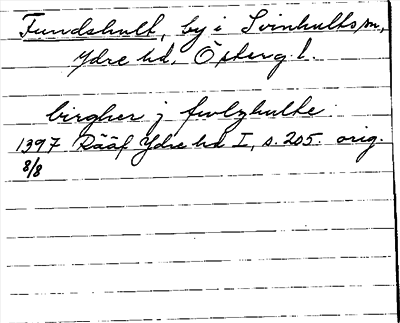 Fundshult, by i Svinhults sn,
Ydre hd, Österg l.
birgher j fwlzhulte.
1397 Rääf Ydre hd I, s. 205. orig.
8/8